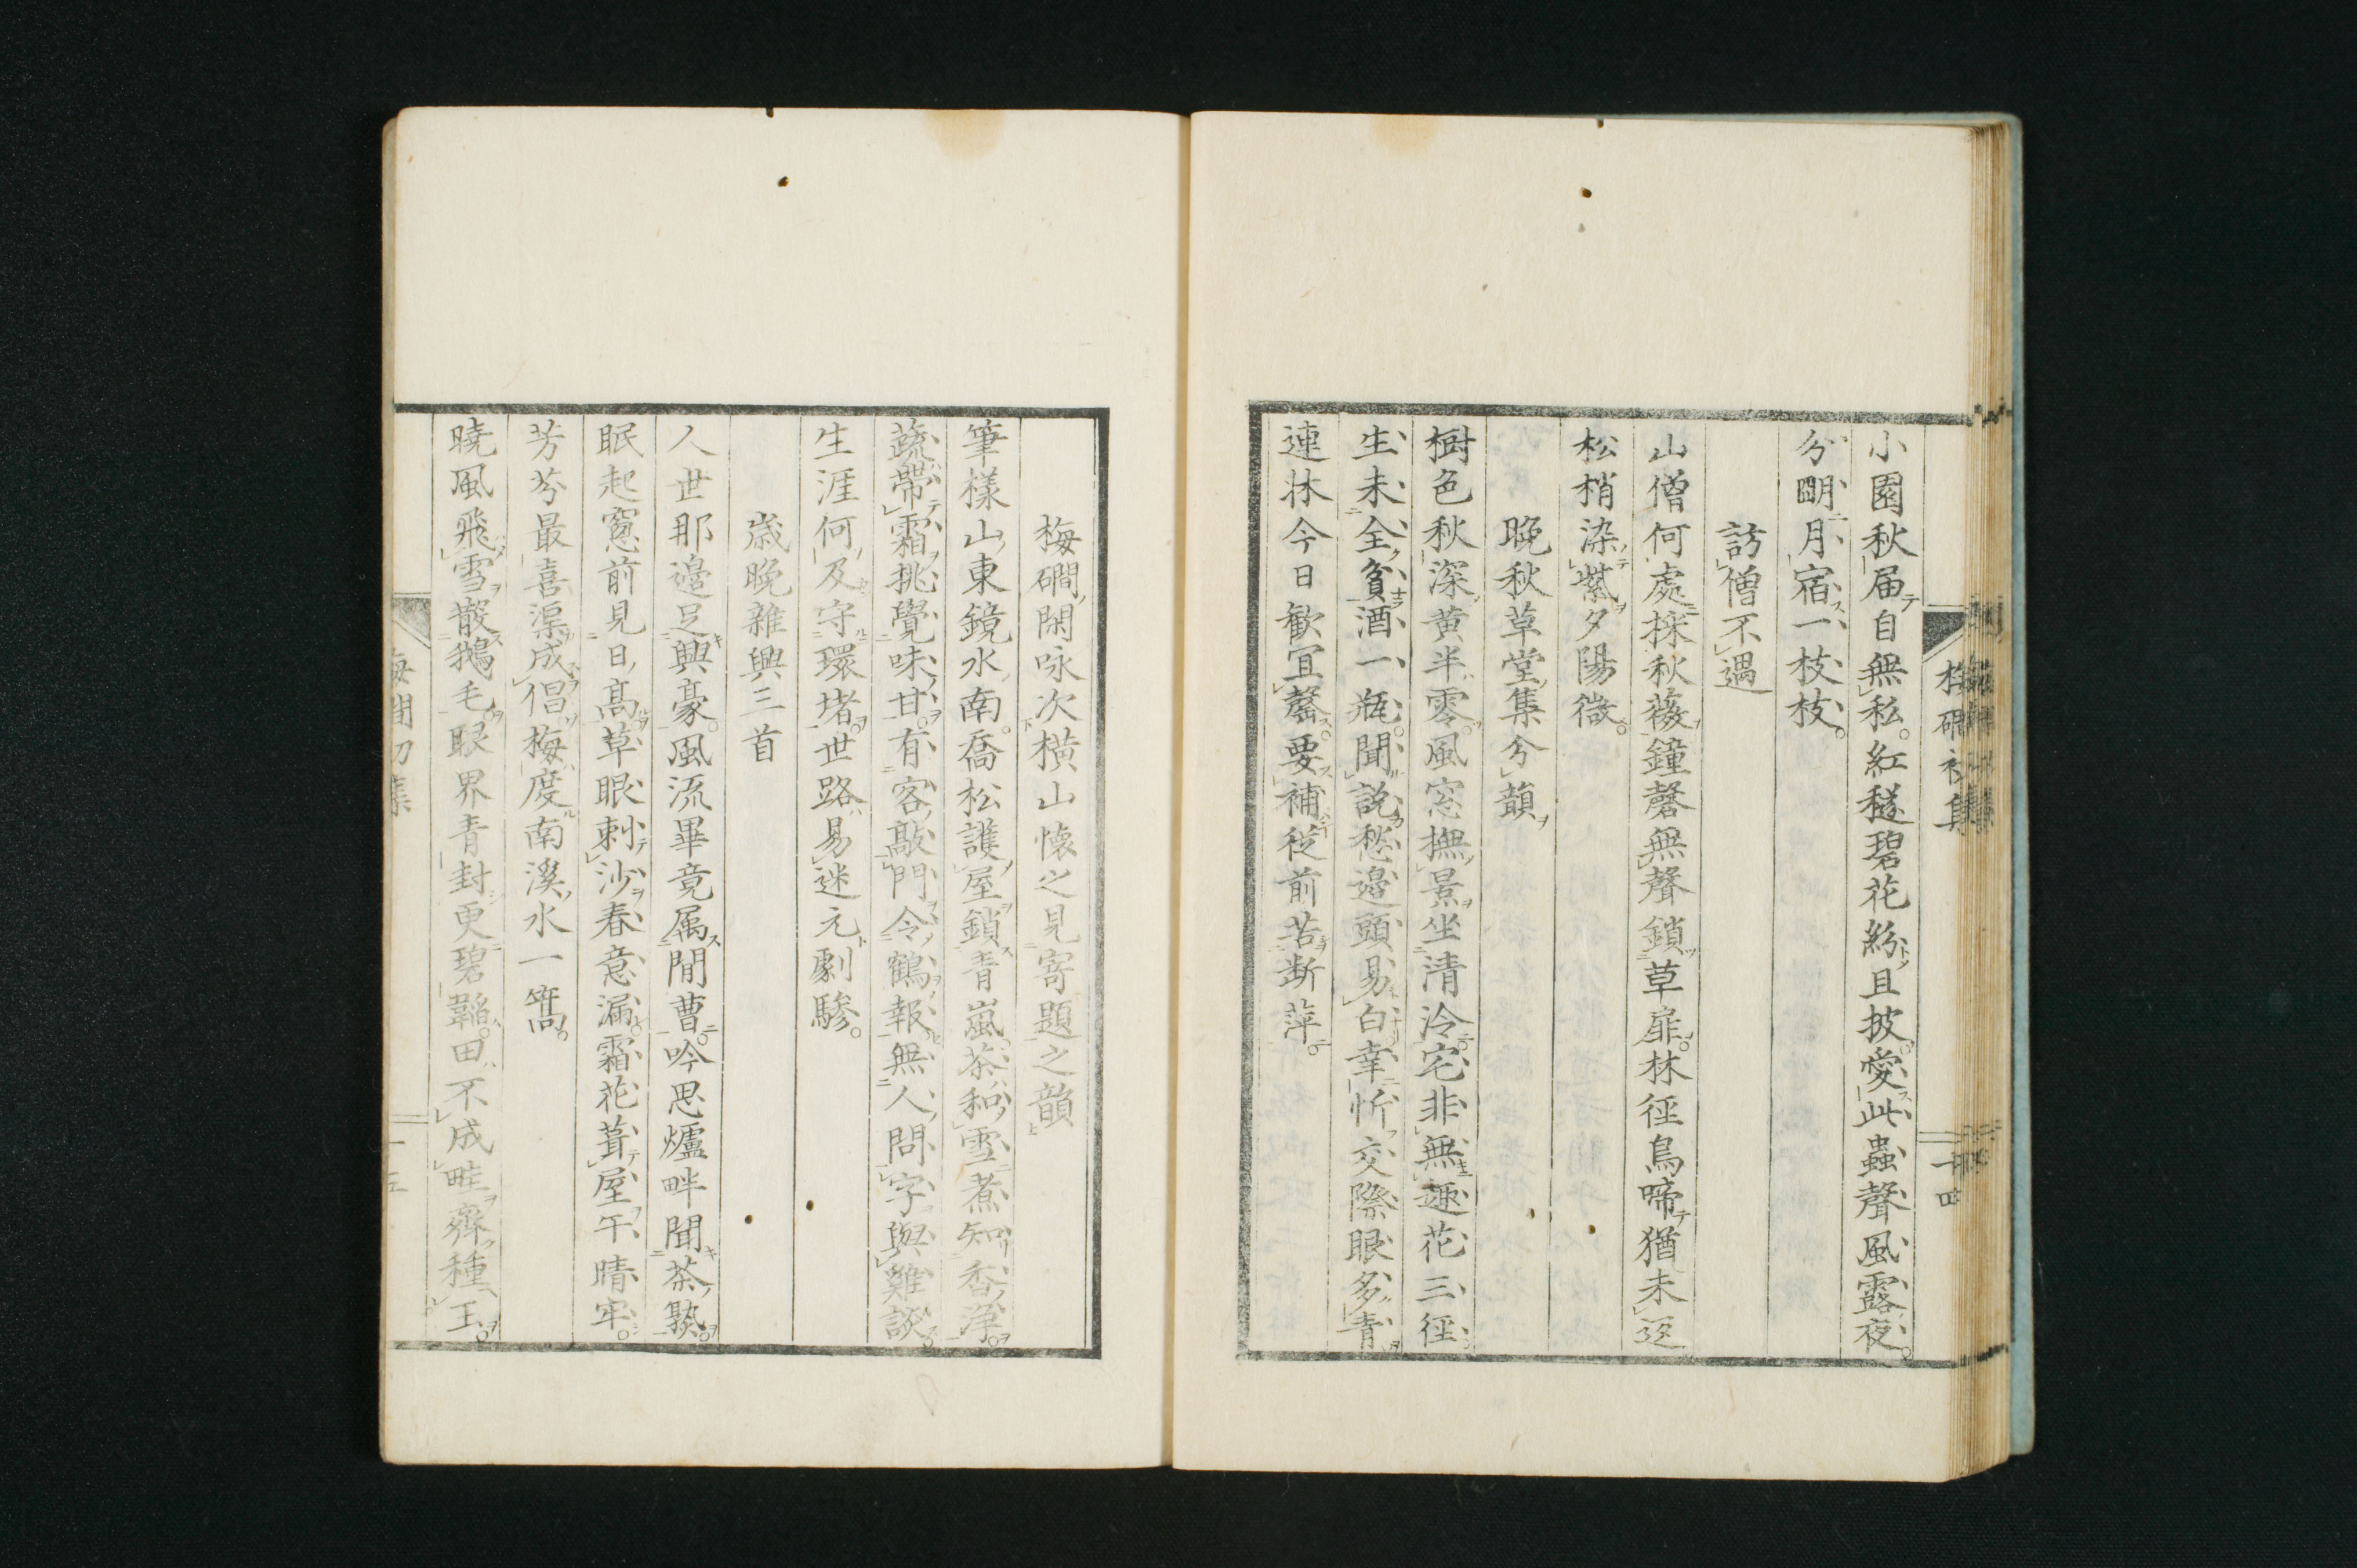 小園秋届自無私紅穟碧花紛且披愛此蟲聲風露夜
分明月宿一枝枝
訪僧不遇
山僧何處採秋薇鐘磬無聲鎖草扉林徑鳥啼猶未返
松梢染紫夕陽微
晩秋草堂集分韻
樹色秋深黄半零風窓撫景坐清泠宅非無趣花三徑
生未全貧酒一瓶聞說愁邊頭易白幸忻交際眼多青
連牀今日歓冝罄要補從前苦断萍
梅磵初集
十四
梅磵閑咏次横山懷之見寄題之韻
筆様山東鏡水南喬松護屋鎖青嵐茶和雪煮知香浄
蔬帶霜挑覺味甘有客敲門令鶴報無人問字與雞談
生涯何及守環堵世路易迷元劇驂
歳晩雜興三首
人世那邊足興豪風流畢竟属閒曹吟思爐畔聞茶熟
眠起窓前見日高草眼刺沙春意漏霜花葺屋午晴牢
芳芬最喜渠成侶梅度南溪水一篙
曉風飛雪散鵝毛眼界青封更碧韜田不成畦齊種玉